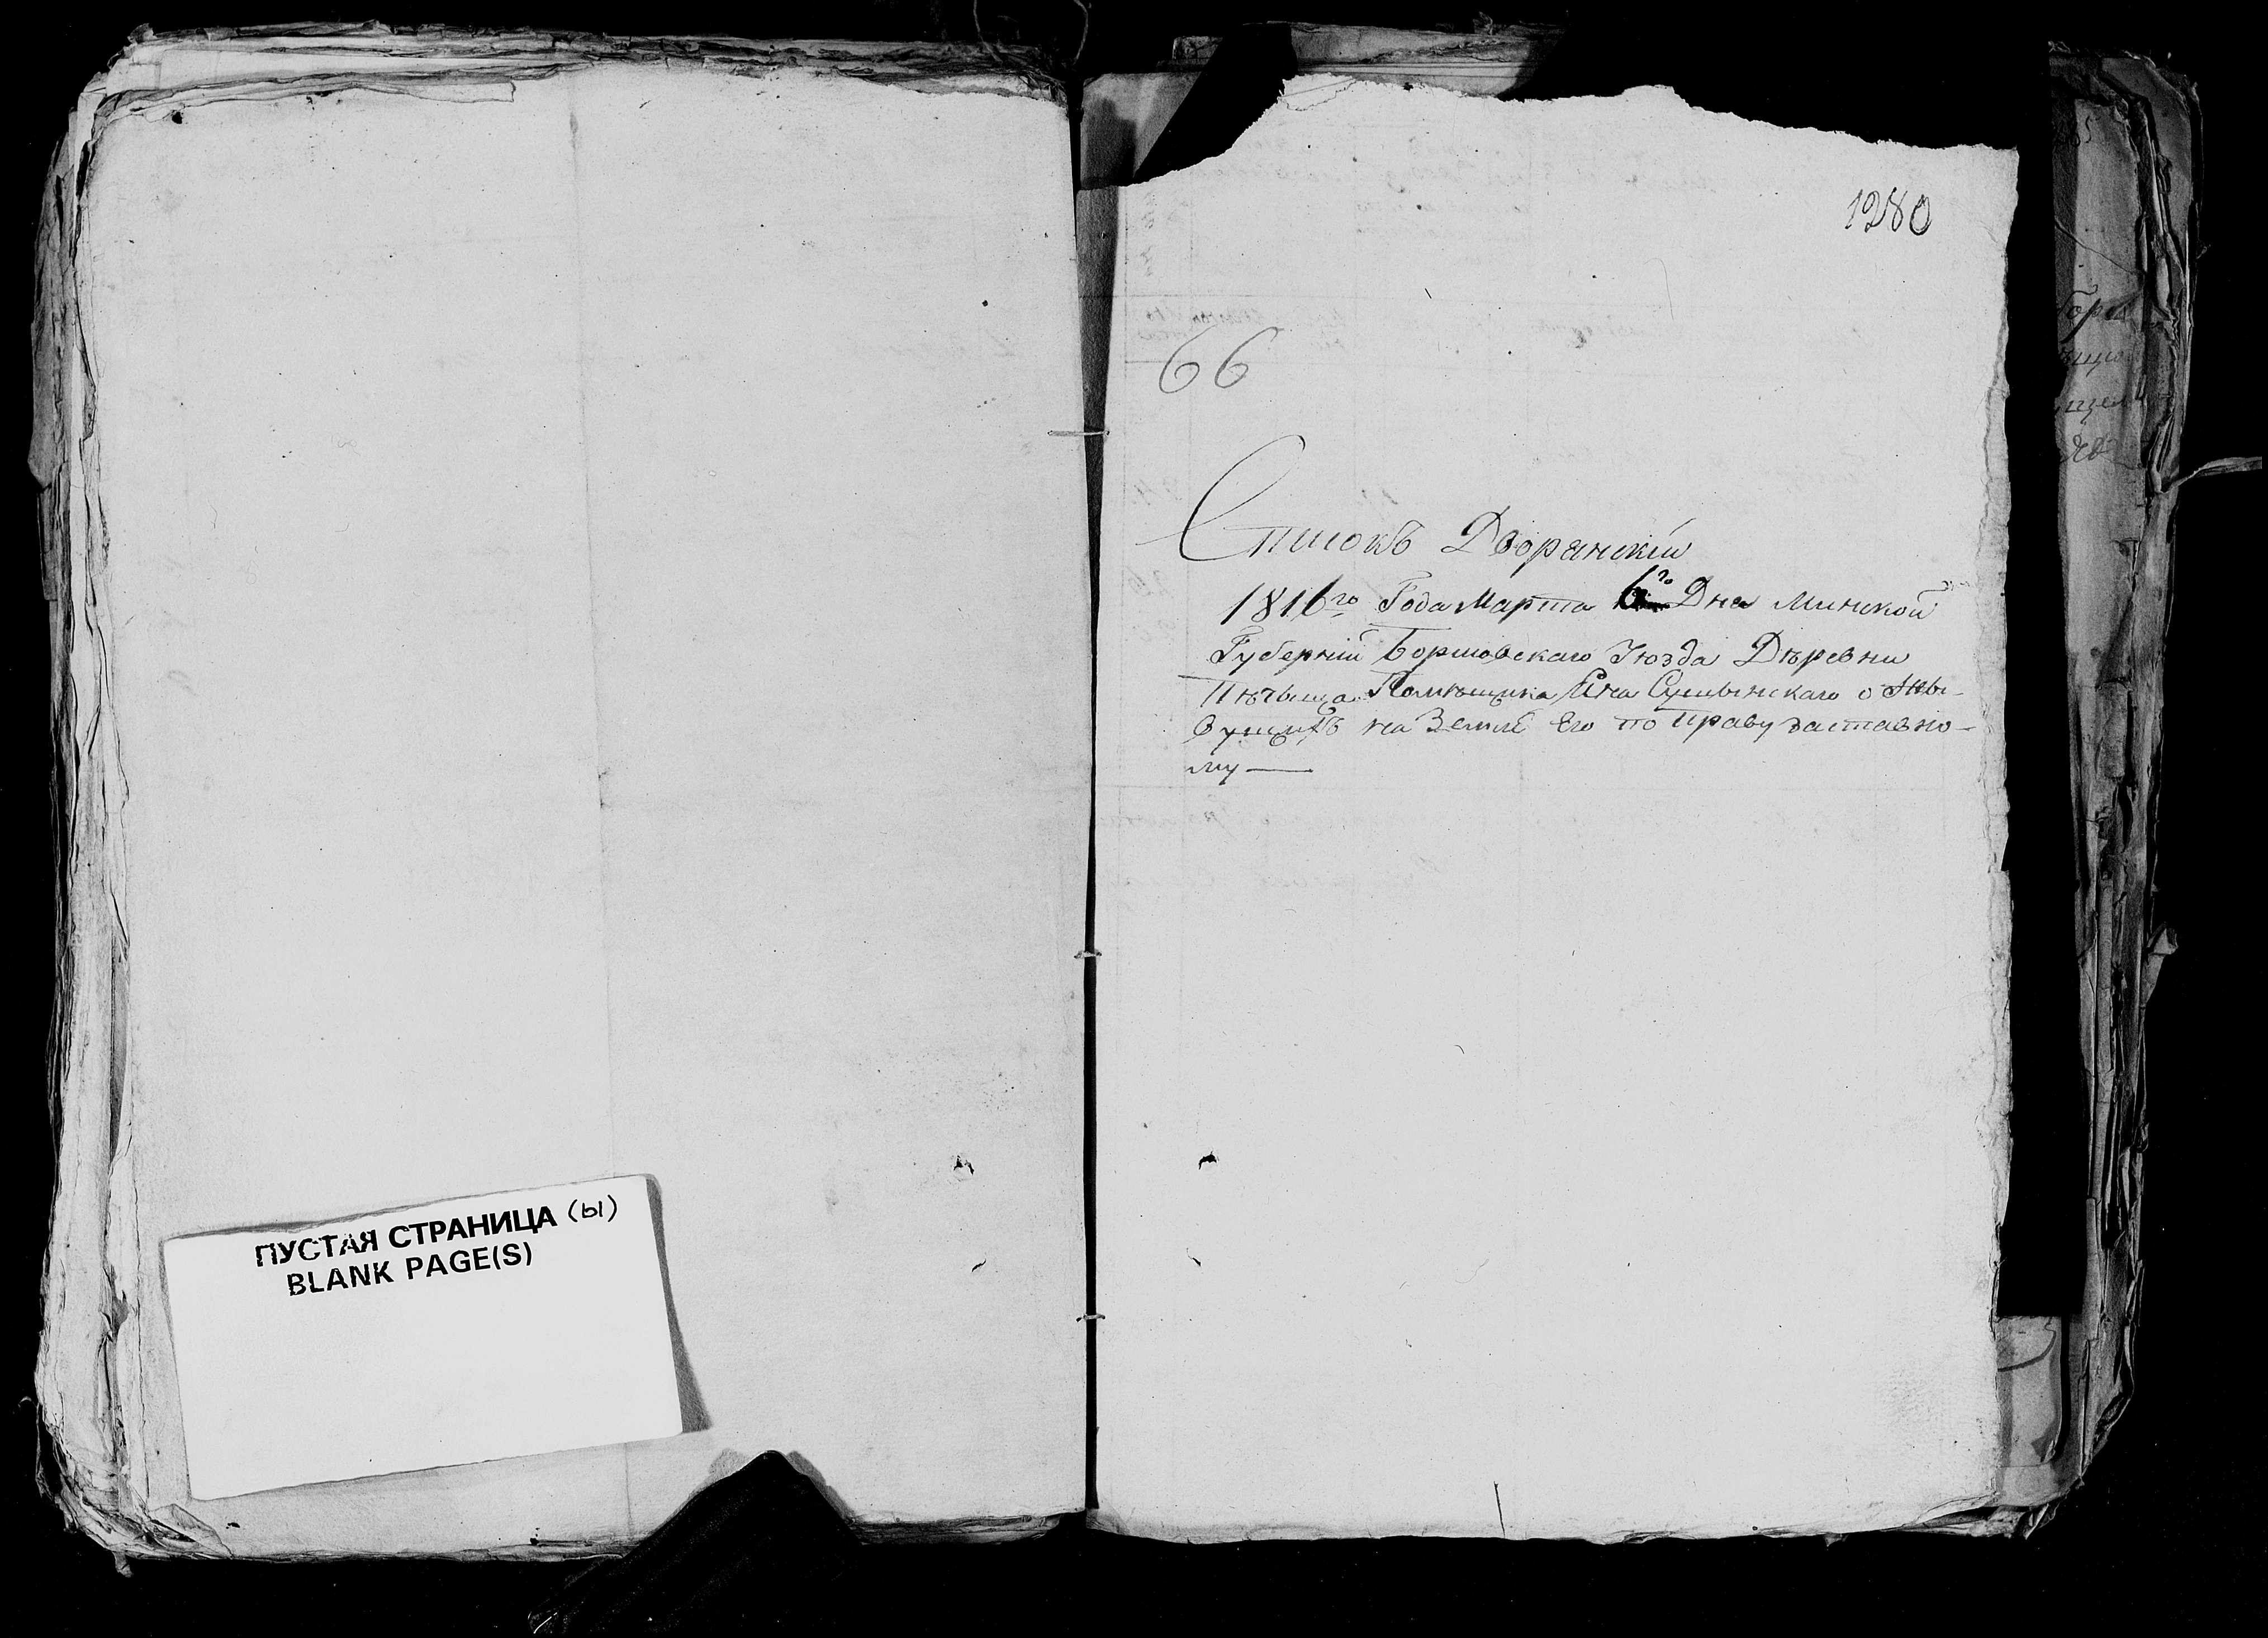 ПУСТАЯ СТРАНИЦА (ы)
BLANK PAGE(S)
1280
66
Списокъ Дворянскій
1816го Года Марта 6го Дня Минской
Губерніи Борисовскаго Уюзда Дѣревни
Помѣщика Яна о Жы-
вущихъ на Землѣ Его по Праву заставно-
му